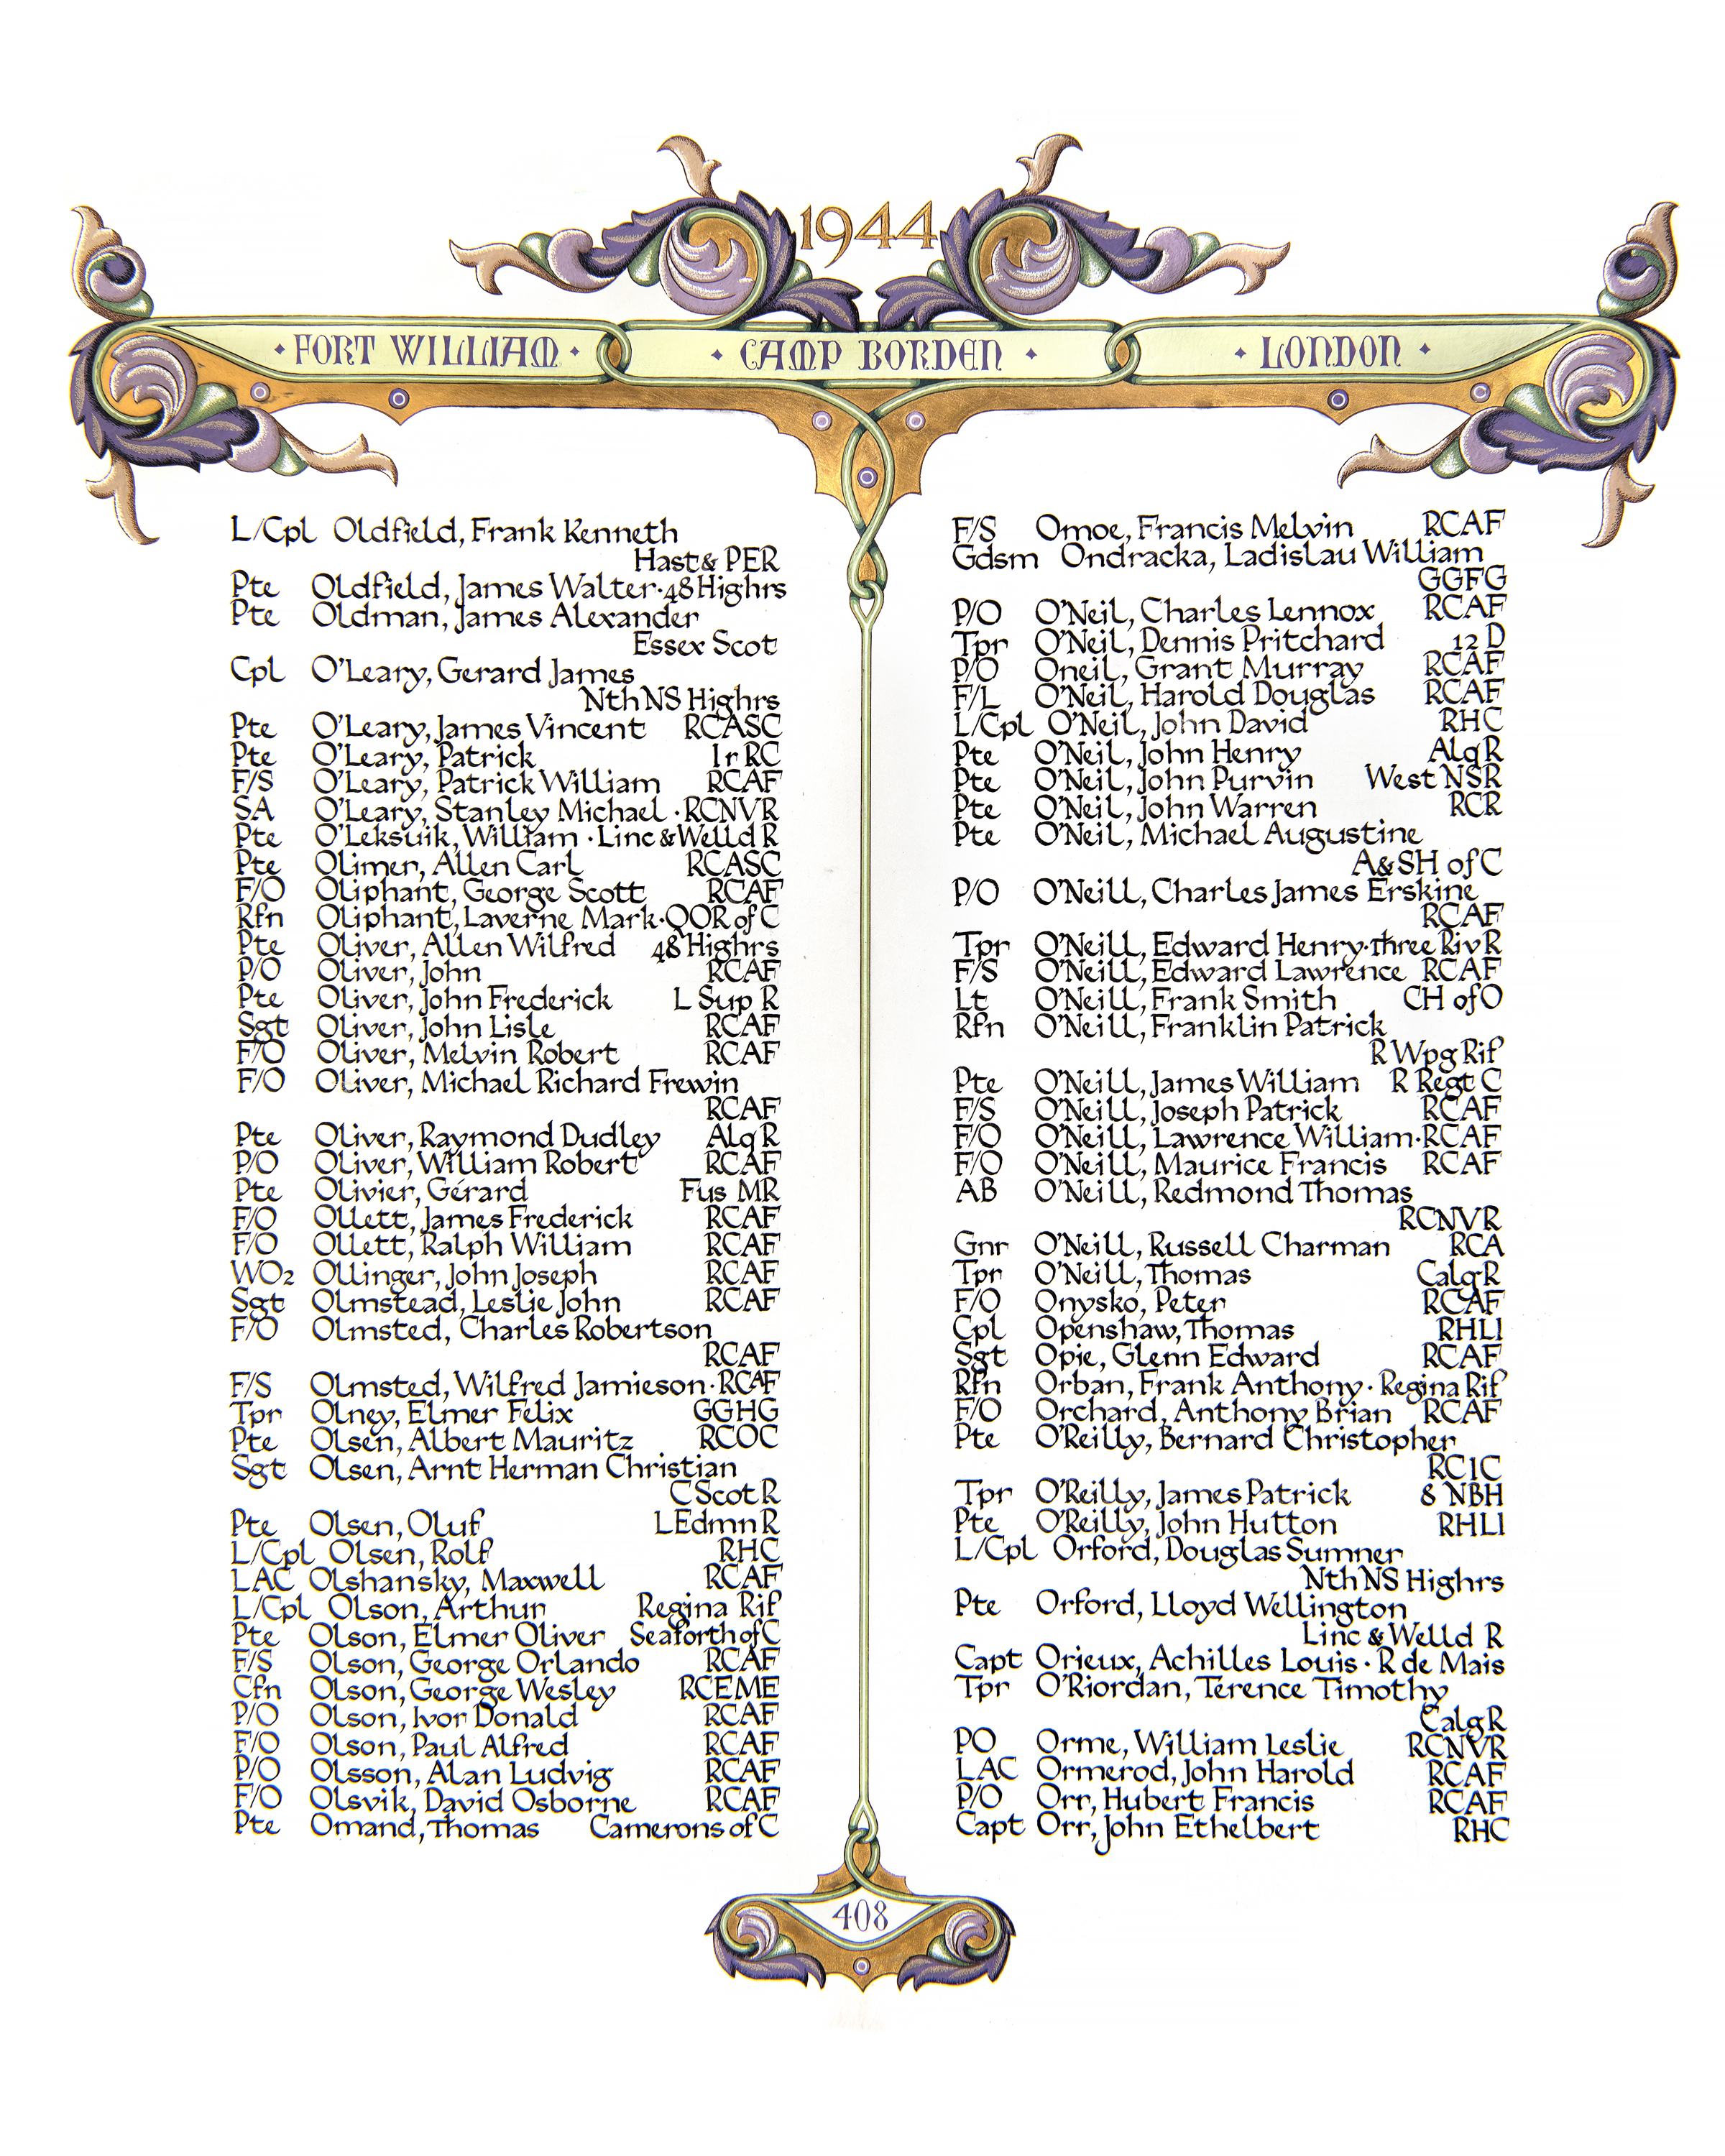 1944
· FORT WILLIAM · · CAMP BORDEN · · LONDON ·
L/Cpl Oldfield, Frank Kenneth
Hast & PER
Pte Oldfield, James Walter · 48 Highrs
Pte Oldman, James Alexander
Essex Scot
Cpl O'Leary, Gerard James
Nth NS Highrs
Pte O'Leary, James Vincent RCASC
Pte O'Leary, Patrick Ir RC
F/S O'Leary, Patrick William RCAF
SA O'Leary, Stanley Michael · RCNVR
Pte O'Leksuik, William · Linc & Welld R
Pte Olimer, Allen Carl RCASC
F/O Oliphant, George Scott RCAF
Rfn Oliphant, Laverne Mark · QOR of C
Pte Oliver, Allen Wilfred 48 Highrs
P/O Oliver, John RCAF
Pte Oliver, John Frederick L Sup R
Sgt Oliver, John Lisle RCAF
F/O Oliver, Melvin Robert RCAF
F/O Oliver, Michael Richard Frewin
RCAF
Pte Oliver, Raymond Dudley Alq R
P/O Oliver, William Robert RCAF
Pte Olivier, Gérard Fus MR
F/O Ollett, James Frederick RCAF
F/O Ollett, Ralph William RCAF
WO2 Ollinger, John Joseph RCAF
Sgt Olmstead, Leslie John RCAF
F/O Olmsted, Charles Robertson
RCAF
F/S Olmsted, Wilfred Jamieson · RCAF
Tpr Olney, Elmer Felix GGHG
Pte Olsen, Albert Mauritz RCOC
Sgt Olsen, Arnt Herman Christian
C Scot R
Pte Olsen, Oluf L Edmn R
L/Cpl Olsen, Rolf RHC
LAC Olshansky, Maxwell RCAF
L/Cpl Olson, Arthur Regina Rif
Pte Olson, Elmer Oliver Seaforth of C
F/S Olson, George Orlando RCAF
Cfn Olson, George Wesley RCEME
P/O Olson, Ivor Donald RCAF
F/O Olson, Paul Alfred RCAF
P/O Olsson, Alan Ludvig RCAF
F/O Olsvik, David Osborne RCAF
Pte Omand, Thomas Camerons of C
F/S Omoe, Francis Melvin RCAF
Gdsm Ondracka, Ladislau William
GGFG
P/O O'Neil, Charles Lennox RCAF
Tpr O'Neil, Dennis Pritchard 12 D
P/O Oneil, Grant Murray RCAF
F/L O'Neil, Harold Douglas RCAF
L/Cpl O'Neil, John David RHC
Pte O'Neil, John Henry Alq R
Pte O'Neil, John Purvin West NSR
Pte O'Neil, John Warren RCR
Pte O'Neil, Michael Augustine
A & SH of C
P/O O'Neill, Charles James Erskine
RCAF
Tpr O'Neill, Edward Henry · Three Riv R
F/S O'Neill, Edward Lawrence RCAF
Lt O'Neill, Frank Smith CH of O
Rfn O'Neill, Franklin Patrick
R Wpg Rif
Pte O'Neill, James William R Regt C
F/S O'Neill, Joseph Patrick RCAF
F/O O'Neill, Lawrence William · RCAF
F/O O'Neill, Maurice Francis RCAF
AB O'Neill, Redmond Thomas
RCNVR
Gnr O'Neill, Russell Charman RCA
Tpr O'Neill, Thomas Calg R
F/O Onysko, Peter RCAF
Cpl Openshaw, Thomas RHLI
Sgt Opie, Glenn Edward RCAF
Rfn Orban, Frank Anthony · Regina Rif
F/O Orchard, Anthony Brian RCAF
Pte O'Reilly, Bernard Christopher
RCIC
Tpr O'Reilly, James Patrick 8 NBH
Pte O'Reilly, John Hutton RHLI
L/Cpl Orford, Douglas Sumner
Nth NS Highrs
Pte Orford, Lloyd Wellington
Linc & Welld R
Capt Orieux, Achilles Louis · R de Mais
Tpr O'Riordan, Terence Timothy
Calg R
PO Orme, William Leslie RCNVR
LAC Ormerod, John Harold RCAF
P/O Orr, Hubert Francis RCAF
Capt Orr, John Ethelbert RHC
408